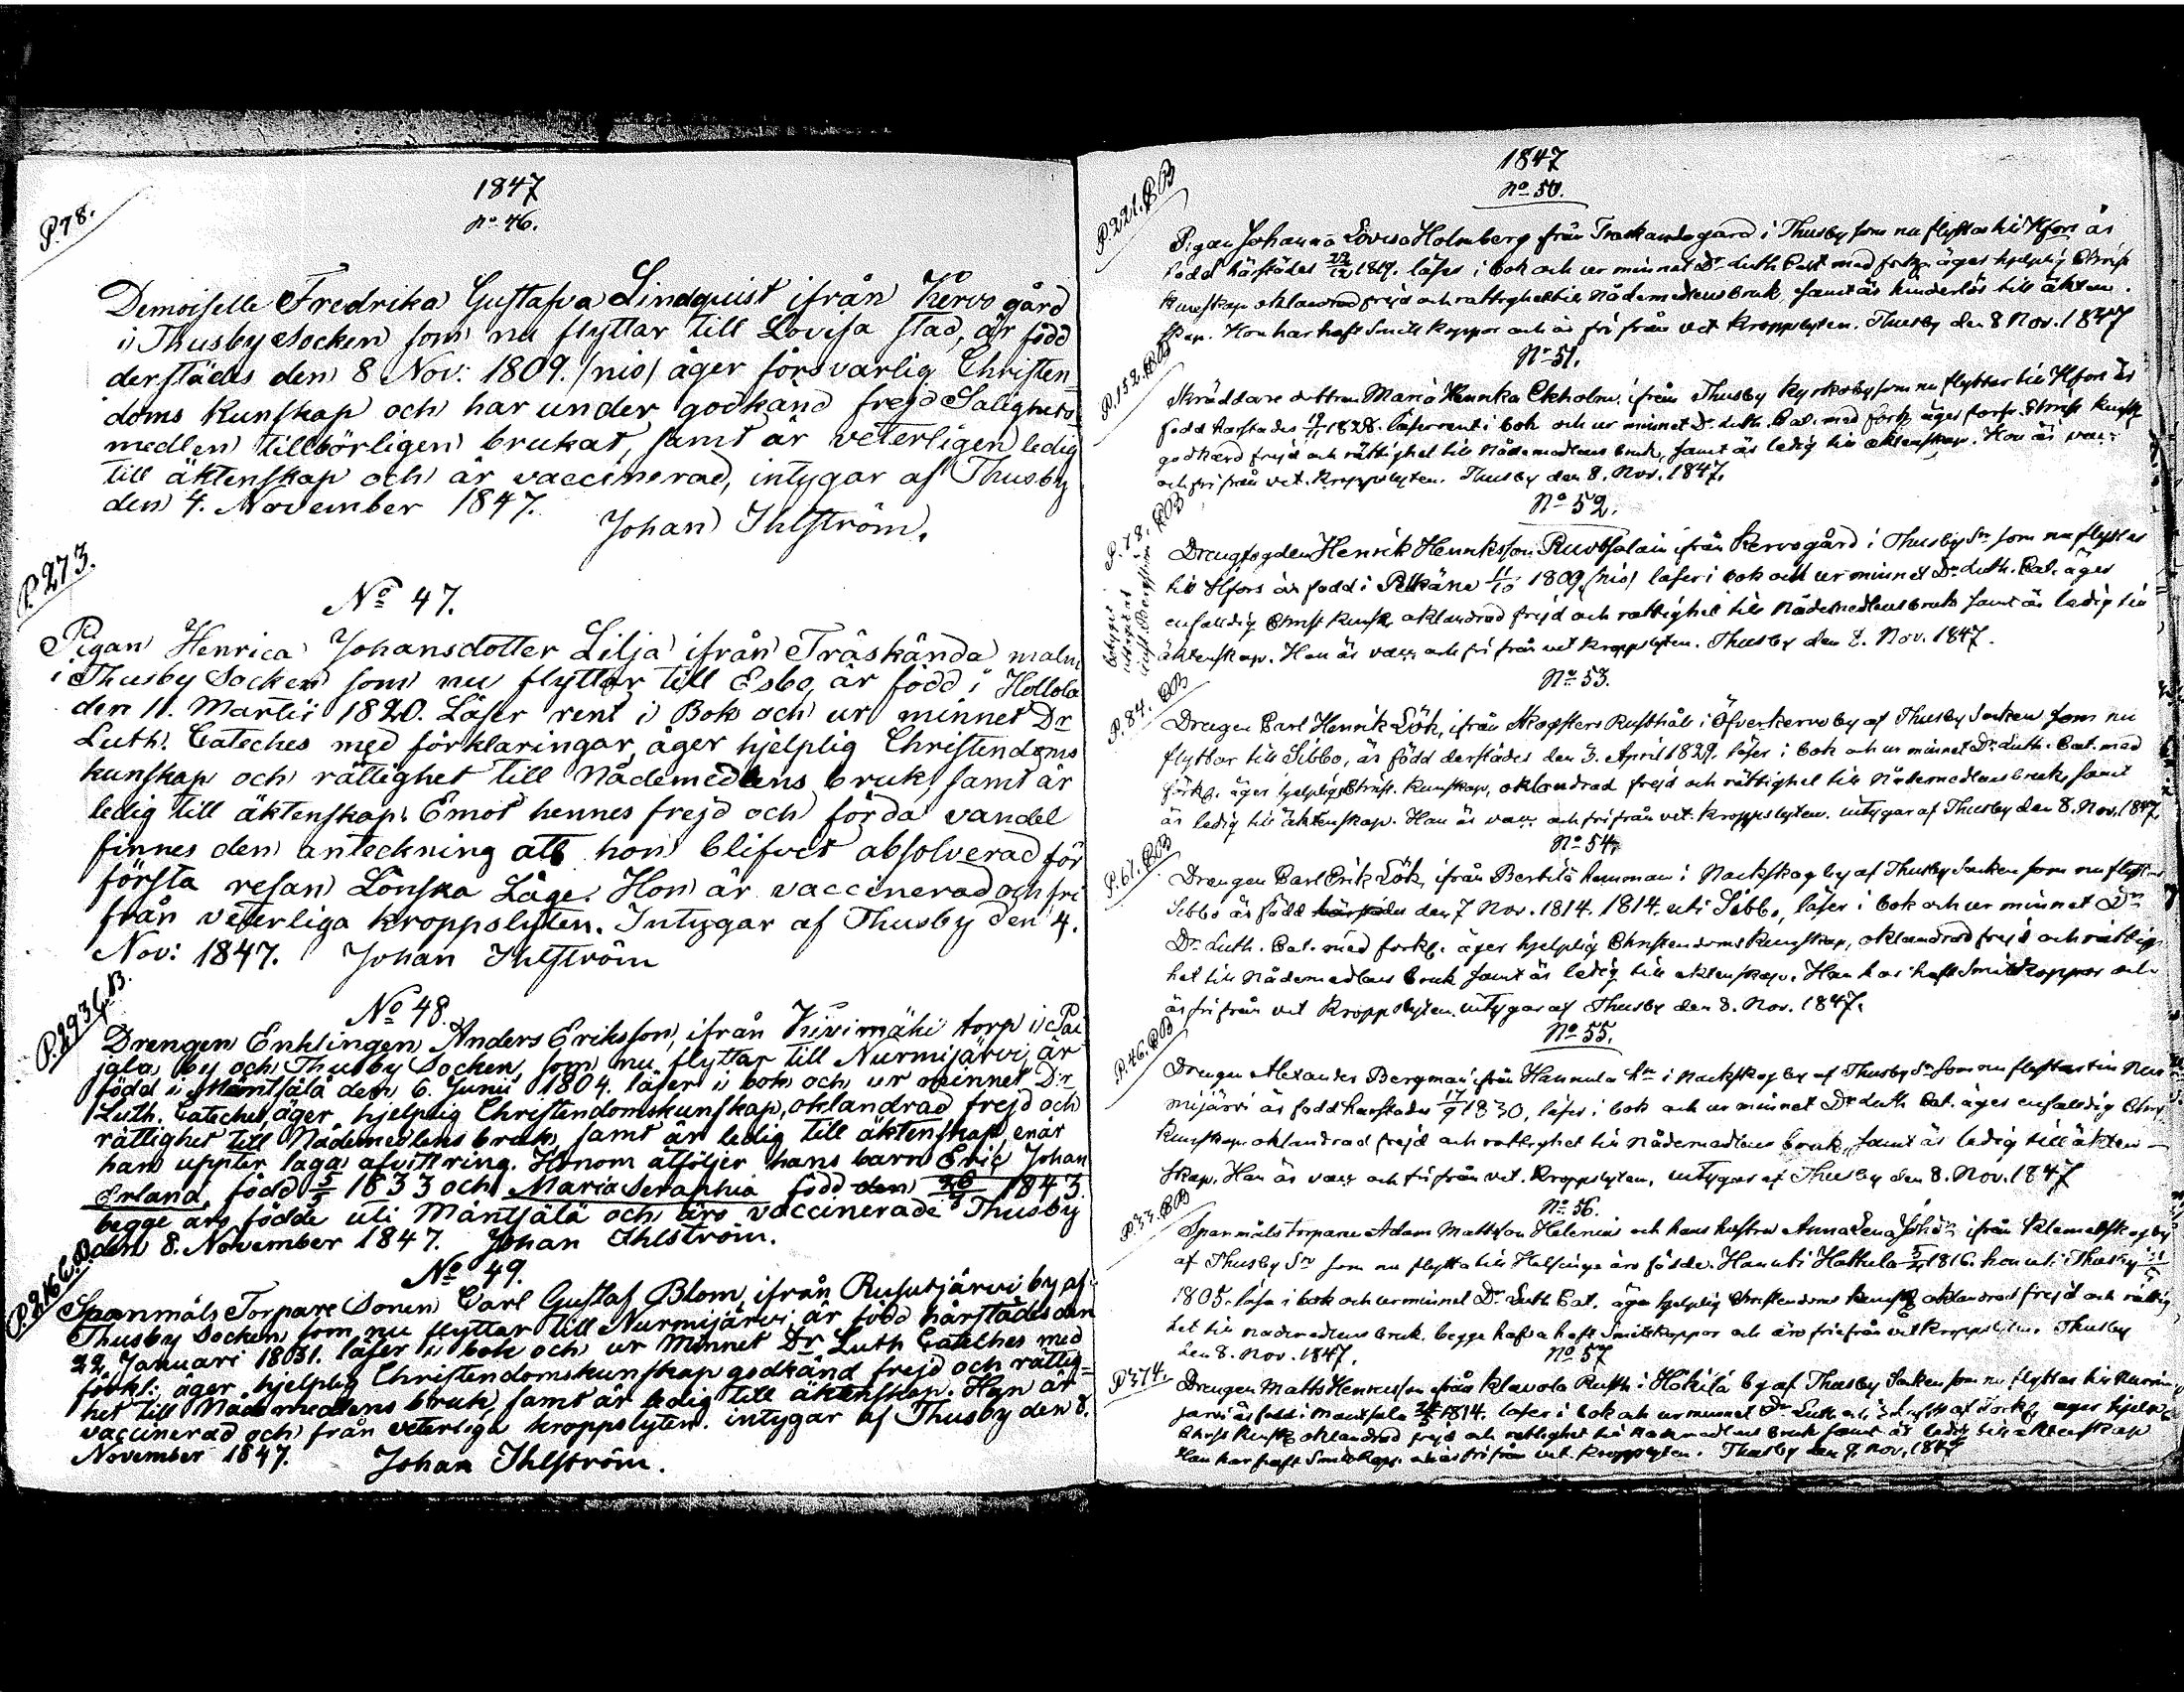 1847
No 46.
P.78.
Demoiselle Fredrika Gustafva Lindquist ifrån Kervo gård
i Thusby Socken som nu flyttar till Lovisa stad, är född
derstädes den 8 Nov: 1809. /nio/ äger försvarlig Christen=
doms Kunskap och har under godkänd frejd Salighets=
medlen tillbörligen brukat, samt är veterligen ledig
till äktenskap och är vaccinerad, intygar af Thusby
den 4. November 1847.
Johan Ihlström.
P.273.
No 47.
Pigan Henrica Johansdotter Lilja ifrån Träskända malm
i Thusby Socken som nu flyttar till Esbo, är född i Hollola
den 11. Martii 1820. Läser rent i Bok och ur minnet Dr
Luth. Cateches med förklaringar, äger hjelplig Christendoms
kunskap och rättighet till Nådemedlens bruk, samt är
ledig till äktenskap. Emot hennes frejd och förda vandel
finnes den anteckning att hon blifvit absolverad för
första resan Lönska Läge. Hon är vaccinerad och fri
från veterliga kroppslyten. Intygar af Thusby den 4.
Nov: 1847. Johan Ihlström
P.293 C.B.
No 48.
Drengen Enklingen Anders Eriksson, ifrån Kivimäki torp i Pai
jala by och Thusby Socken, som nu flyttar till Nurmijärvi, är
född i Mäntsälä den 6. Junii 1804. läser i bok och ur minnet Dr
Luth. Cateches, äger hjelplig Christendomskunskap, oklandrad frejd och
rättighet till Nådemedlens bruk, samt är ledig till äktenskap, enär
han uppter laga afvittring. Honom åtföljer hans barn Eric Johan
Erland, född 5/5 1833 och Maria Seraphia född den 26/8 1843.
begge äro födde uti Mäntsälä och äro vaccinerade Thusby
den 8. November 1847. Johan Ihlström.
P.216 C.B.
No 49.
Spanmåls Torpare Sonen Carl Gustaf Blom ifrån Rusutjärvi by af
Thusby Socken som nu flyttar till Nurmijärvi, är född härstädes den
22 Januari 18031. läser i bok och ur Minnet Dr Luth Cateches med
förkl: äger hjelplig Christendomskunskap godkänd frejd och rättig=
het till Nådemedlens bruk, samt är ledig till äktenskap. Han är
vaccinerad och från veterliga kroppslyten. intygar af Thusby den 8.
November 1847. Johan Ihlström.
1847
No 50.
P.221. CB
Pigan Johanna Lovisa Holmberg från Träskända gård i Thusby som nu flyttar till Hfors är
född härstädes 1819. läser i bok och ur minnet Dr Luth Cat med förkl. äger hjelplig Christ
kunskap oklandrad frejd och rättighet till Nådemedlens bruk, samt är hinderlös till äkten=
skap. Hon har haft Smittkoppor och är fri från vet kroppslyten. Thusby den 8 Nov. 1847
No 51.
P.152. CB
Skräddare dottren Maria Henrika Ekholm, ifrån Thusby Kyrkoby som nu flyttar till Hfors är
född härstädes 1828. läser rent i bok och ur minnet Dr Luth. Cat. med förkl äger försv Christ kunsk
godkänd frejd och rättighet till Nådemedlens bruk, samt är ledig till äktenskap. Hon är vacc
och fri från vet. kroppslyten. Thusby den 8. Nov. 1847.
No 52.
P.78. CB
betyget
uttaget af
Drengfogden Henrik Henriksson Ruotsalain ifrån Kervo gård i Thusby Sn som nu flyttar
till Hfors är född i Pelkäne 11/10 1809 /nio/ läser i bok och ur minnet Dr Luth. Cat. äger
enfaldig Christ kunsk oklandrad frejd och rättighet till Nådemedlens bruk samt är ledig till
äktenskap. Han är vacc och fri från vet kroppslyten. Thusby den 8. Nov. 1847.
No 53.
P.84. CB
Drengen Carl Henrik Lök, ifrån Skogsters Rusthåll i Öfverkervo by af Thusby Socken som nu
flyttar till Sibbo, är född derstädes den 3. April 1829. läser i bok och ur minnet Dr Luth. Cat. med
förkl. äger hjelplig Christ. kunskap, oklandrad frejd och rättighet till Nådemedlens bruk, samt
är ledig till äktenskap. Han är vacc och fri från vet. kroppslyten. intygar af Thusby den 8. Nov. 1847.
No 54.
P.61. CB
Drengen Carl Erik Lök, ifrån Bertils hemman i Nackskog by af Thusby Socken som nu flyttar
Sibbo är född härstädes den 7 Nov. 1814. 1814. uti Sibbo, läser i bok och ur minnet Dr
Dr Luth. Cat. med förkl. äger hjelplig Christendoms kunskap, oklandrad frejd och rättig
het till Nådemedlens bruk samt är ledig till äktenskap. Han har haft Smittkoppor och
är fri från vet kroppslyten. intygar af Thusby den 8. Nov. 1847.
No 55.
P.46. CB
Drengen Alexander Bergman ifrån Hannula hn i Nackskog by af Thusby Sn som nu flyttar till Nur
mijärvi är född härstädes 17/9 1830, läser i bok och ur minnet Dr Luth Cat. äger enfaldig Chri
kunskap oklandrad frejd och rättighet till Nådemedlens bruk, samt är ledig till äkten=
skap. Han är vacc och fri från vet. kroppslyten, intygar af Thusby den 8. Nov. 1847
No 56.
P.33. CB
Spanmåls torparen Adam Mattsson Helenius och hans hustru Anna Lena Johdr ifrån Klemetskog by
af Thusby Sn som nu flytta till Helsinge äro födde. Han uti Hattula 1816. hon uti Thusby
1805. läsa i bok och ur minnet Dr Luth Cat. äga hjelplig Christendoms kunsk oklandrad frejd och rättig
het till nådemedlens bruk. begge hafva haft Smittkoppor och äro frie från vet kroppslyten. Thusby
den 8. Nov. 1847.
No 57
P374.
Drengen Matts Henricsson ifrån Klavola Rusth i Hökilä by af Thusby Socken som nu flyttar till Nurmi
järvi är född i Mäntsälä 1814. läser i bok och ur minnet Dr Luth äger hjelp
Christ kunsk oklandrad frejd och rättighet till Nådemedlens bruk samt är ledig till äktenskap
Han har haft Smittkopp. och är fri från vet. kroppslyten. Thusby den 9. Nov. 1847